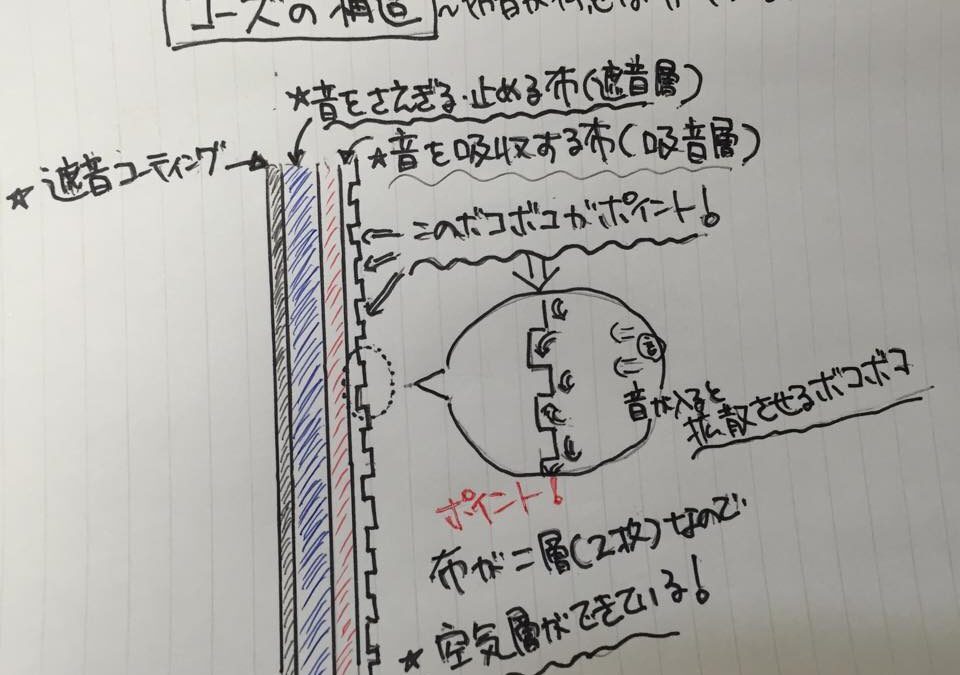 コーズの構造
★音をさえぎる・止める布(遮音層)
★遮音コーティング→
★音を吸収する布(吸音層)
⇐このボコボコがポイント!
音
音が入ると
拡散させるボコボコ
ポイント!
布が二層(2枚)なので
★空気層ができている!